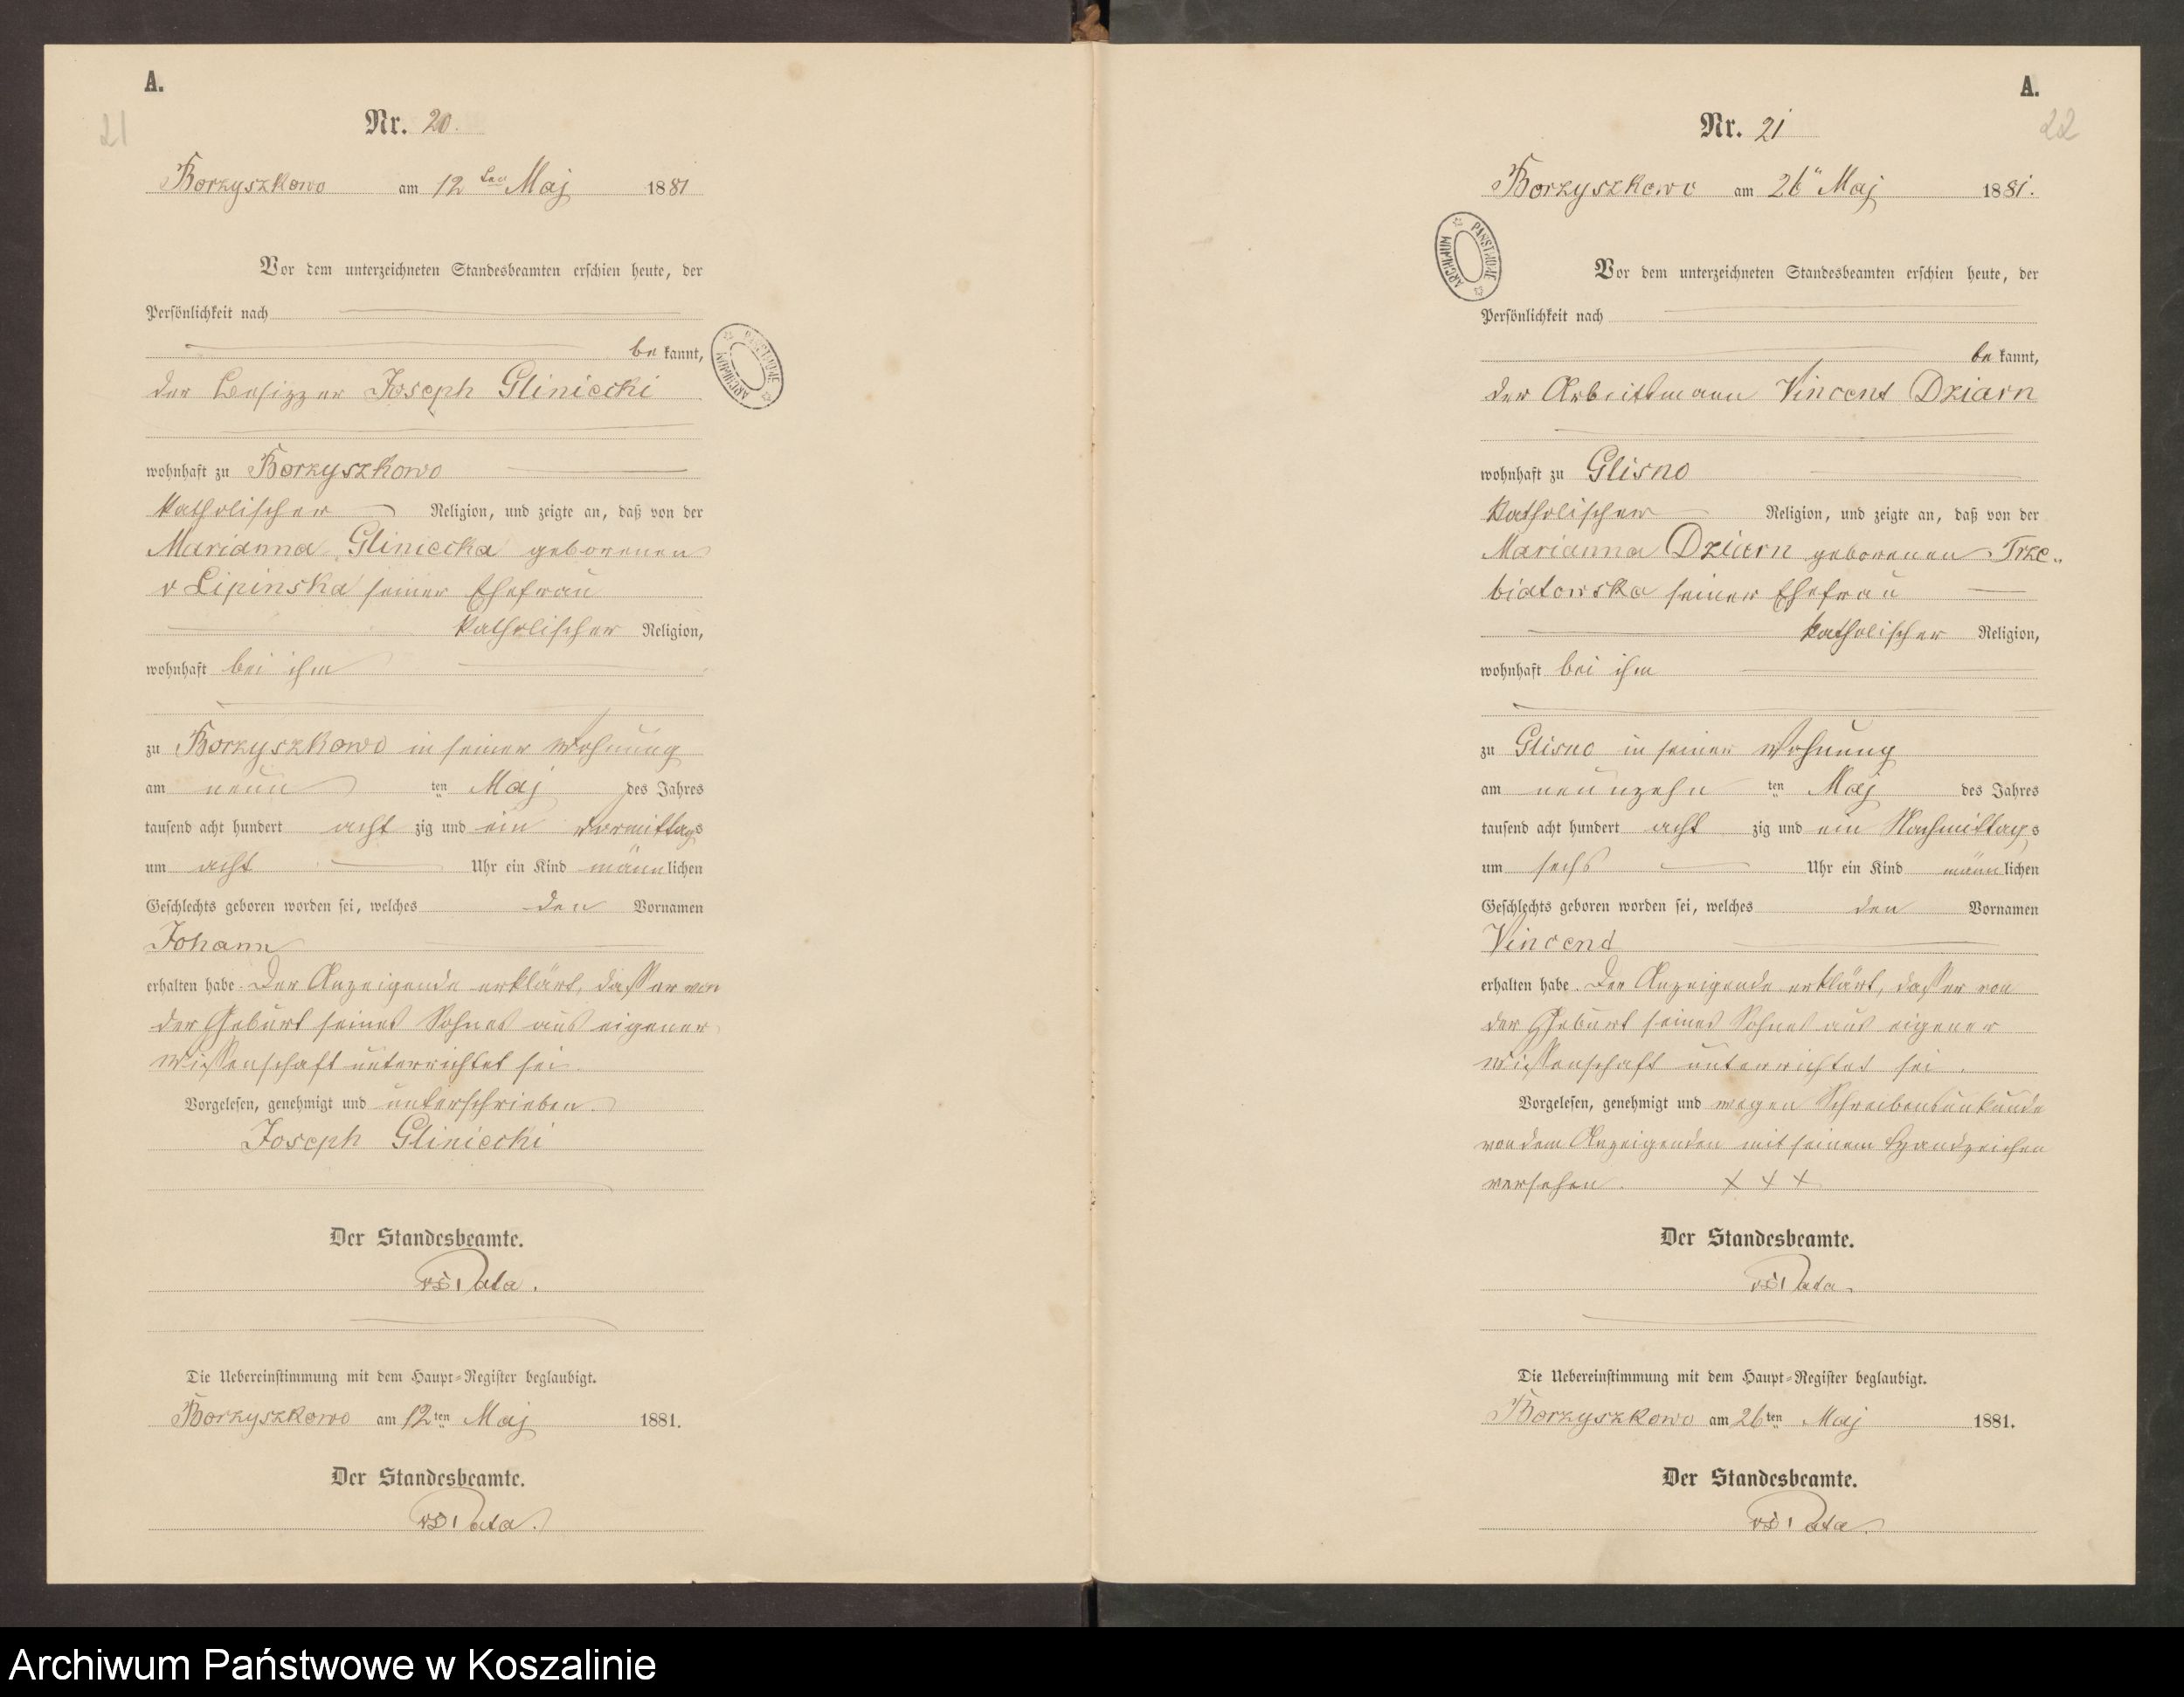 A.
21
Nr. 20.
Borzyszkowo am 12 ten Maj 1881
Vor dem unterzeichneten Standesbeamten erschien heute, der
Persönlichkeit nach
be kannt,
der Besizzer Joseph Gliniecki
wohnhaft zu Borzyszkowo
katholischer Religion, und zeigte an, daß von der
Marianna Gliniecka geborenen
v Lipinska seiner Ehefrau
katholischer Religion,
wohnhaft bei ihm
zu Borzyszkowo in seiner Wohnung
am neun ten Maj des Jahres
tausend acht hundert acht zig und ein Vormittags
um acht Uhr ein Kind männlichen
Geschlechts geboren worden sei, welches den Vornamen
Johann
erhalten habe. Der Anzeigende erklärt, dasser von
der Geburt seines Sohnes aus eigener
Wissenschaft unterrichtet sei.
Vorgelesen, genehmigt und unterschrieben.
Joseph Gliniecki
Der Standesbeamte.
Die Uebereinstimmung mit dem Haupt-Register beglaubigt.
Borzyszkowo am 12ten Maj 1881.
Der Standesbeamte.
ARCHIWUM PAŃSTWOWE
A.
22
Nr. 21
Borzyszkowo am 26 Maj 1881.
Vor dem unterzeichneten Standesbeamten erschien heute, der
Persönlichkeit nach
be kannt,
der Arbeitsmann Vincent Dziarn
wohnhaft zu Glisno
katholischer Religion, und zeigte an, daß von der
Marianna Dziarn geborenen Trze-
biatowska seiner Ehefrau
katholischer Religion,
wohnhaft bei ihm
zu Glisno in seiner Wohnung
am neunzehn ten Maj des Jahres
tausend acht hundert acht zig und ein Nachmittags
um sechs Uhr ein Kind männlichen
Geschlechts geboren worden sei, welches den Vornamen
Vincend
erhalten habe. Der Anzeigende erklärt, dasser von
der Geburt seines Sohnes aus eigener
Wissenschaft unterrichtet sei.
Vorgelesen, genehmigt und wegen Schreibensunkunde
von dem Anzeigenden mit seinem Handzeichen
versehen. X X X
Der Standesbeamte.
Die Uebereinstimmung mit dem Haupt-Register beglaubigt.
Borzyszkowo am 26ten Maj 1881.
Der Standesbeamte.
ARCHIWUM PAŃSTWOWE
Archiwum Państwowe w Koszalinie